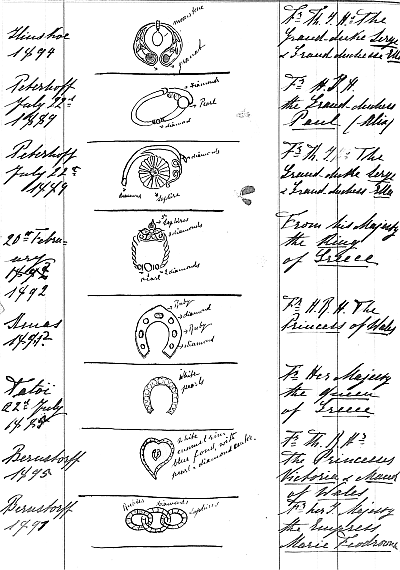 moonstone
garnet
Fr. Th. I. H. The
Grand duke Serge
& Grand duchesse Ella
1894
Peterhoff
July 22d
1889
diamonds
Pearl
diamond
Fr. H.I.H.
the Grand duchess
Paul (Alix)
Peterhoff
July 22d
1889
diamonds
diamond
Saphire
Fr. Th. I. H. The
Grand duke Serge
& Grand duchess Ella
20th Febru-
ary
1892
Saphires
diamonds
pearl
diamonds
From his Majesty
the King
of Greece
Xmas
Ruby
diamond
Ruby
diamond
Fr. H.R.H. The
Princess of Wales
Tatoi
22d July
White
pearls
Fr. Her Majesty
the Queen
of Greece
Bernstorff
1895
White
enamel rim
blue fond, with
pearl & diamond centre.
Fr. Th. R. Hs
the Princesses
Victoria & Maud
of Wales
Bernstorff
Rubies
Diamonds
Saphires
Fr. her I. Majesty
the Empress
Marie Feodrowna